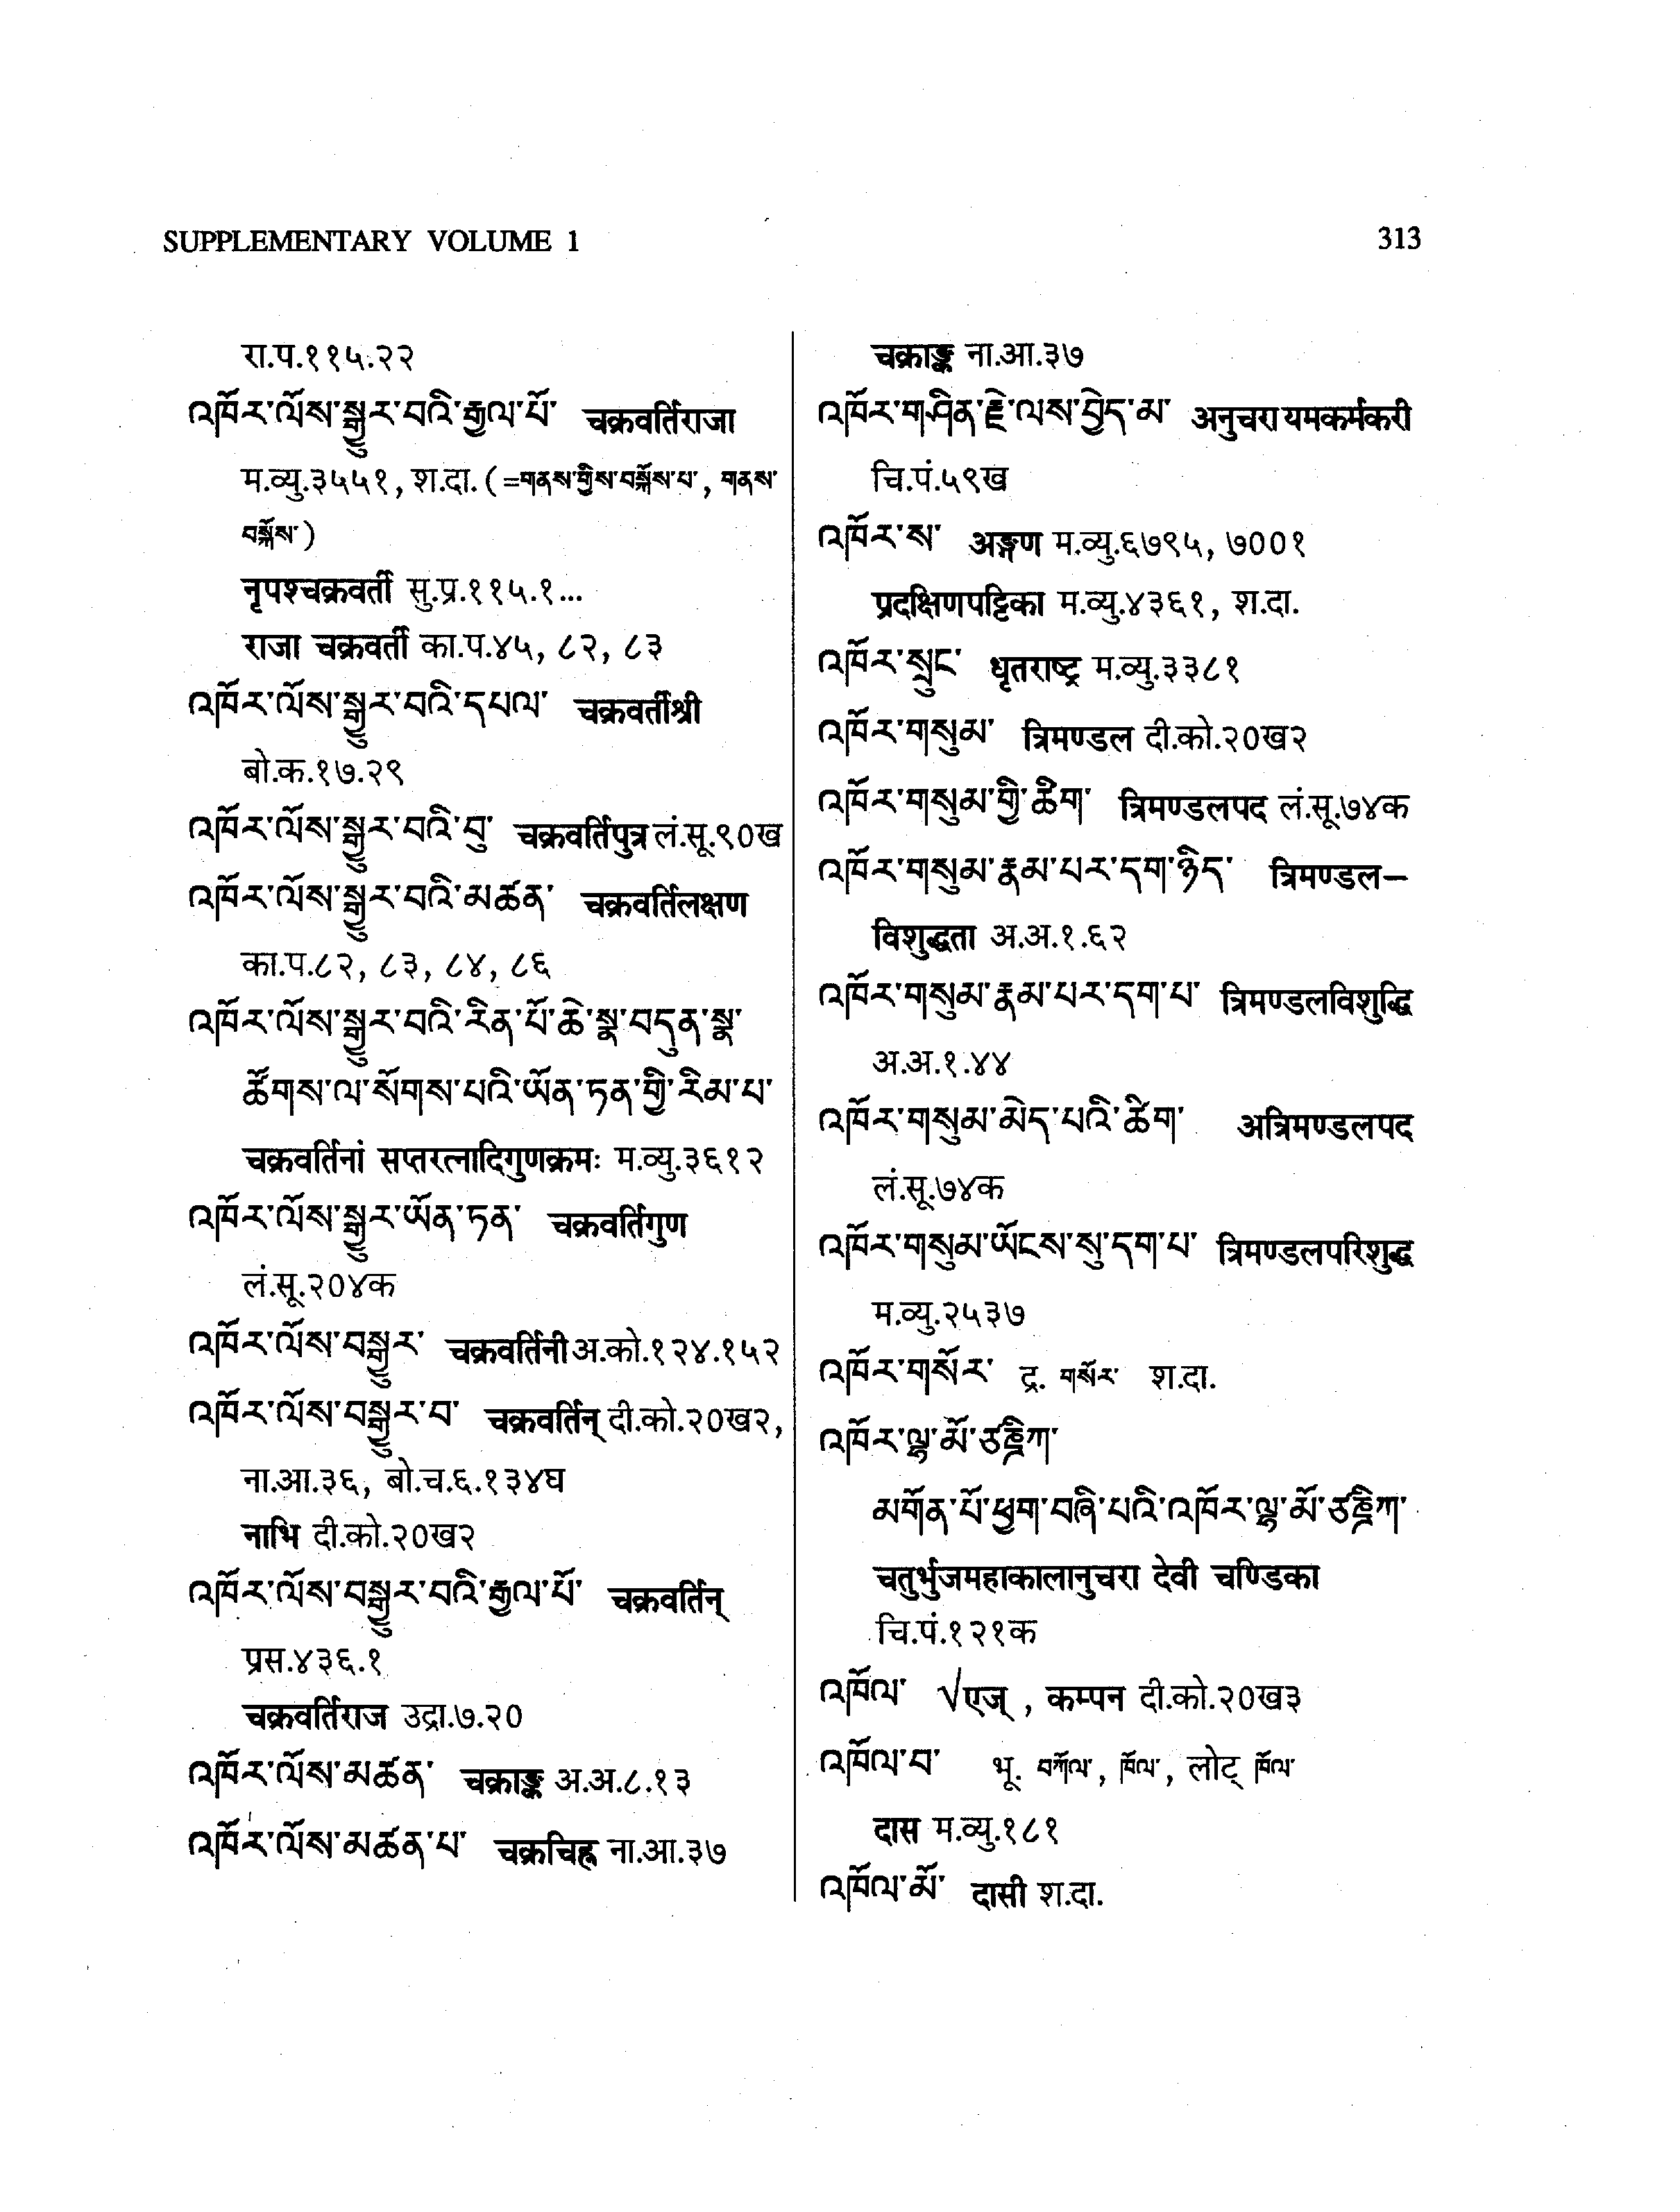 SUPPLEMENTARY VOLUME 1
313
रा.प.११५.२२
འཁོར་ལོས་སྒྱུར་བའི་རྒྱལ་པོ་ चक्रवर्तिराजा
म.व्यु.३५५१, श.दा. (=གནས་ཀྱིས་བསྐོས་པ་, གནས་
བསྐོས་)
नृपश्चक्रवर्ती सु.प्र.११५.१...
राजा चक्रवर्ती का.प.४५, ८२, ८३
འཁོར་ལོས་སྒྱུར་བའི་དཔལ་ चक्रवर्तीश्री
बो.क.१७.२९
འཁོར་ལོས་སྒྱུར་བའི་བུ་ चक्रवर्तिपुत्र लं.सू.९०ख
འཁོར་ལོས་སྒྱུར་བའི་མཚན་ चक्रवर्तिलक्षण
का.प.८२, ८३, ८४, ८६
འཁོར་ལོས་སྒྱུར་བའི་རིན་པོ་ཆེ་སྣ་བདུན་སྣ་
ཚོགས་ལ་སོགས་པའི་ཡོན་ཏན་གྱི་རིམ་པ་
चक्रवर्तिनां सप्तरत्नादिगुणक्रमः म.व्यु.३६१२
འཁོར་ལོས་སྒྱུར་ཡོན་ཏན་ चक्रवर्तिगुण
लं.सू.२०४क
འཁོར་ལོས་བསྒྱུར་ चक्रवर्तिनी अ.को.१२४.१५२
འཁོར་ལོས་བསྒྱུར་བ་ चक्रवर्तिन् दी.को.२०ख२,
ना.आ.३६, बो.च.६.१३४घ
नाभि दी.को.२०ख२
འཁོར་ལོས་བསྒྱུར་བའི་རྒྱལ་པོ་ चक्रवर्तिन्
प्रस.४३६.१
चक्रवर्तिराज उद्रा.७.२०
འཁོར་ལོས་མཚན་ चक्राङ्क अ.अ.८.१३
འཁོར་ལོས་མཚན་པ་ चक्रचिह्न ना.आ.३७
चक्राङ्क ना.आ.३७
འཁོར་གཤིན་རྗེ་ལས་བྱེད་མ་ अनुचरा यमकर्मकरी
चि.पं.५९ख
འཁོར་ས་ अङ्गण म.व्यु.६७९५, ७००१
प्रदक्षिणपट्टिका म.व्यु.४३६१, श.दा.
འཁོར་སྲུང་ धृतराष्ट्र म.व्यु.३३८१
འཁོར་གསུམ་ त्रिमण्डल दी.को.२०ख२
འཁོར་གསུམ་གྱི་ཚིག་ त्रिमण्डलपद लं.सू.७४क
འཁོར་གསུམ་རྣམ་པར་དག་ཉིད་ त्रिमण्डल–
विशुद्धता अ.अ.१.६२
འཁོར་གསུམ་རྣམ་པར་དག་པ་ त्रिमण्डलविशुद्धि
अ.अ.१.४४
འཁོར་གསུམ་མེད་པའི་ཚིག་ अत्रिमण्डलपद
लं.सू.७४क
འཁོར་གསུམ་ཡོངས་སུ་དག་པ་ त्रिमण्डलपरिशुद्ध
म.व्यु.२५३७
འཁོར་གསོར་ द्र. གསོར་ श.दा.
འཁོར་ལྷ་མོ་ཙཎྜི‌ཀ་
མགོན་པོ་ཕྱག་བཞི་པའི་འཁོར་ལྷ་མོ་ཙཎྜིཀ་
चतुर्भुजमहाकालानुचरा देवी चण्डिका
चि.पं.१२१क
འཁོལ་ √एज् , कम्पन दी.को.२०ख३
འཁོལ་བ་ भू. བཀོལ་, ཁོལ་, लोट् ཁོལ་
दास म.व्यु.१८१
འཁོལ་མོ་ दासी श.दा.